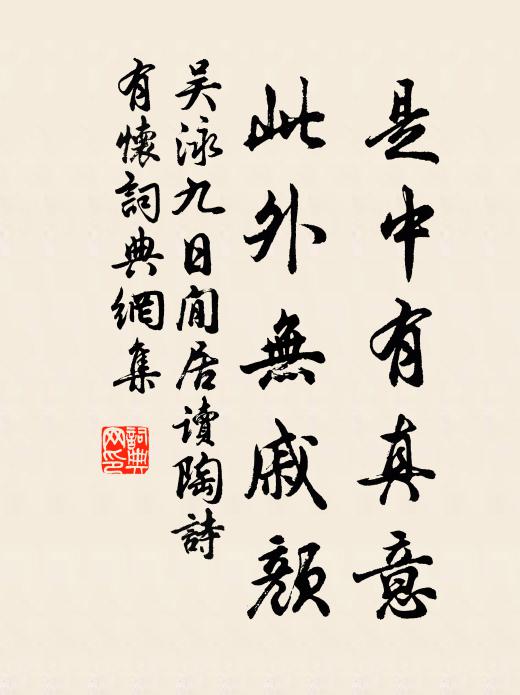 是中有真意
此外無戚顔
吴泳九日閒居读陶詩
有懷詞典網集
詞典
网印